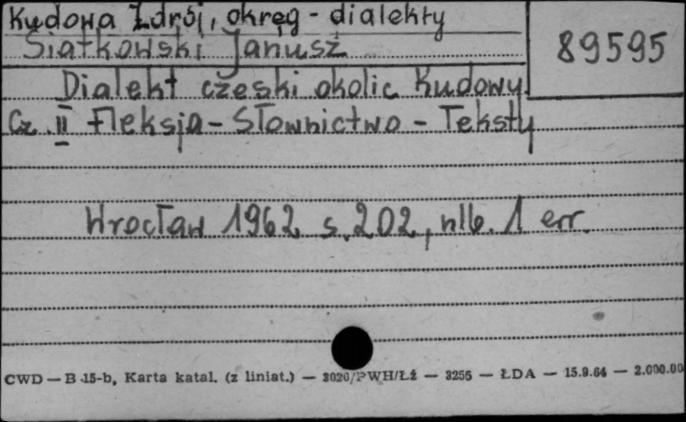 Kudowa Zdrój, okręg - dialekty
Siatkowski Janusz
89595
Dialekt czeski okolic Kudowy
Cz. II Fleksja - Słownictwo - Teksty
Wrocław 1962 s. 202, nlb. 1 err.
CWD — B 15-b, Karta katal. (z liniat.) — 3020/PWH/Łź — 3255 — ŁDA — 15.9.64 — 2.000.00